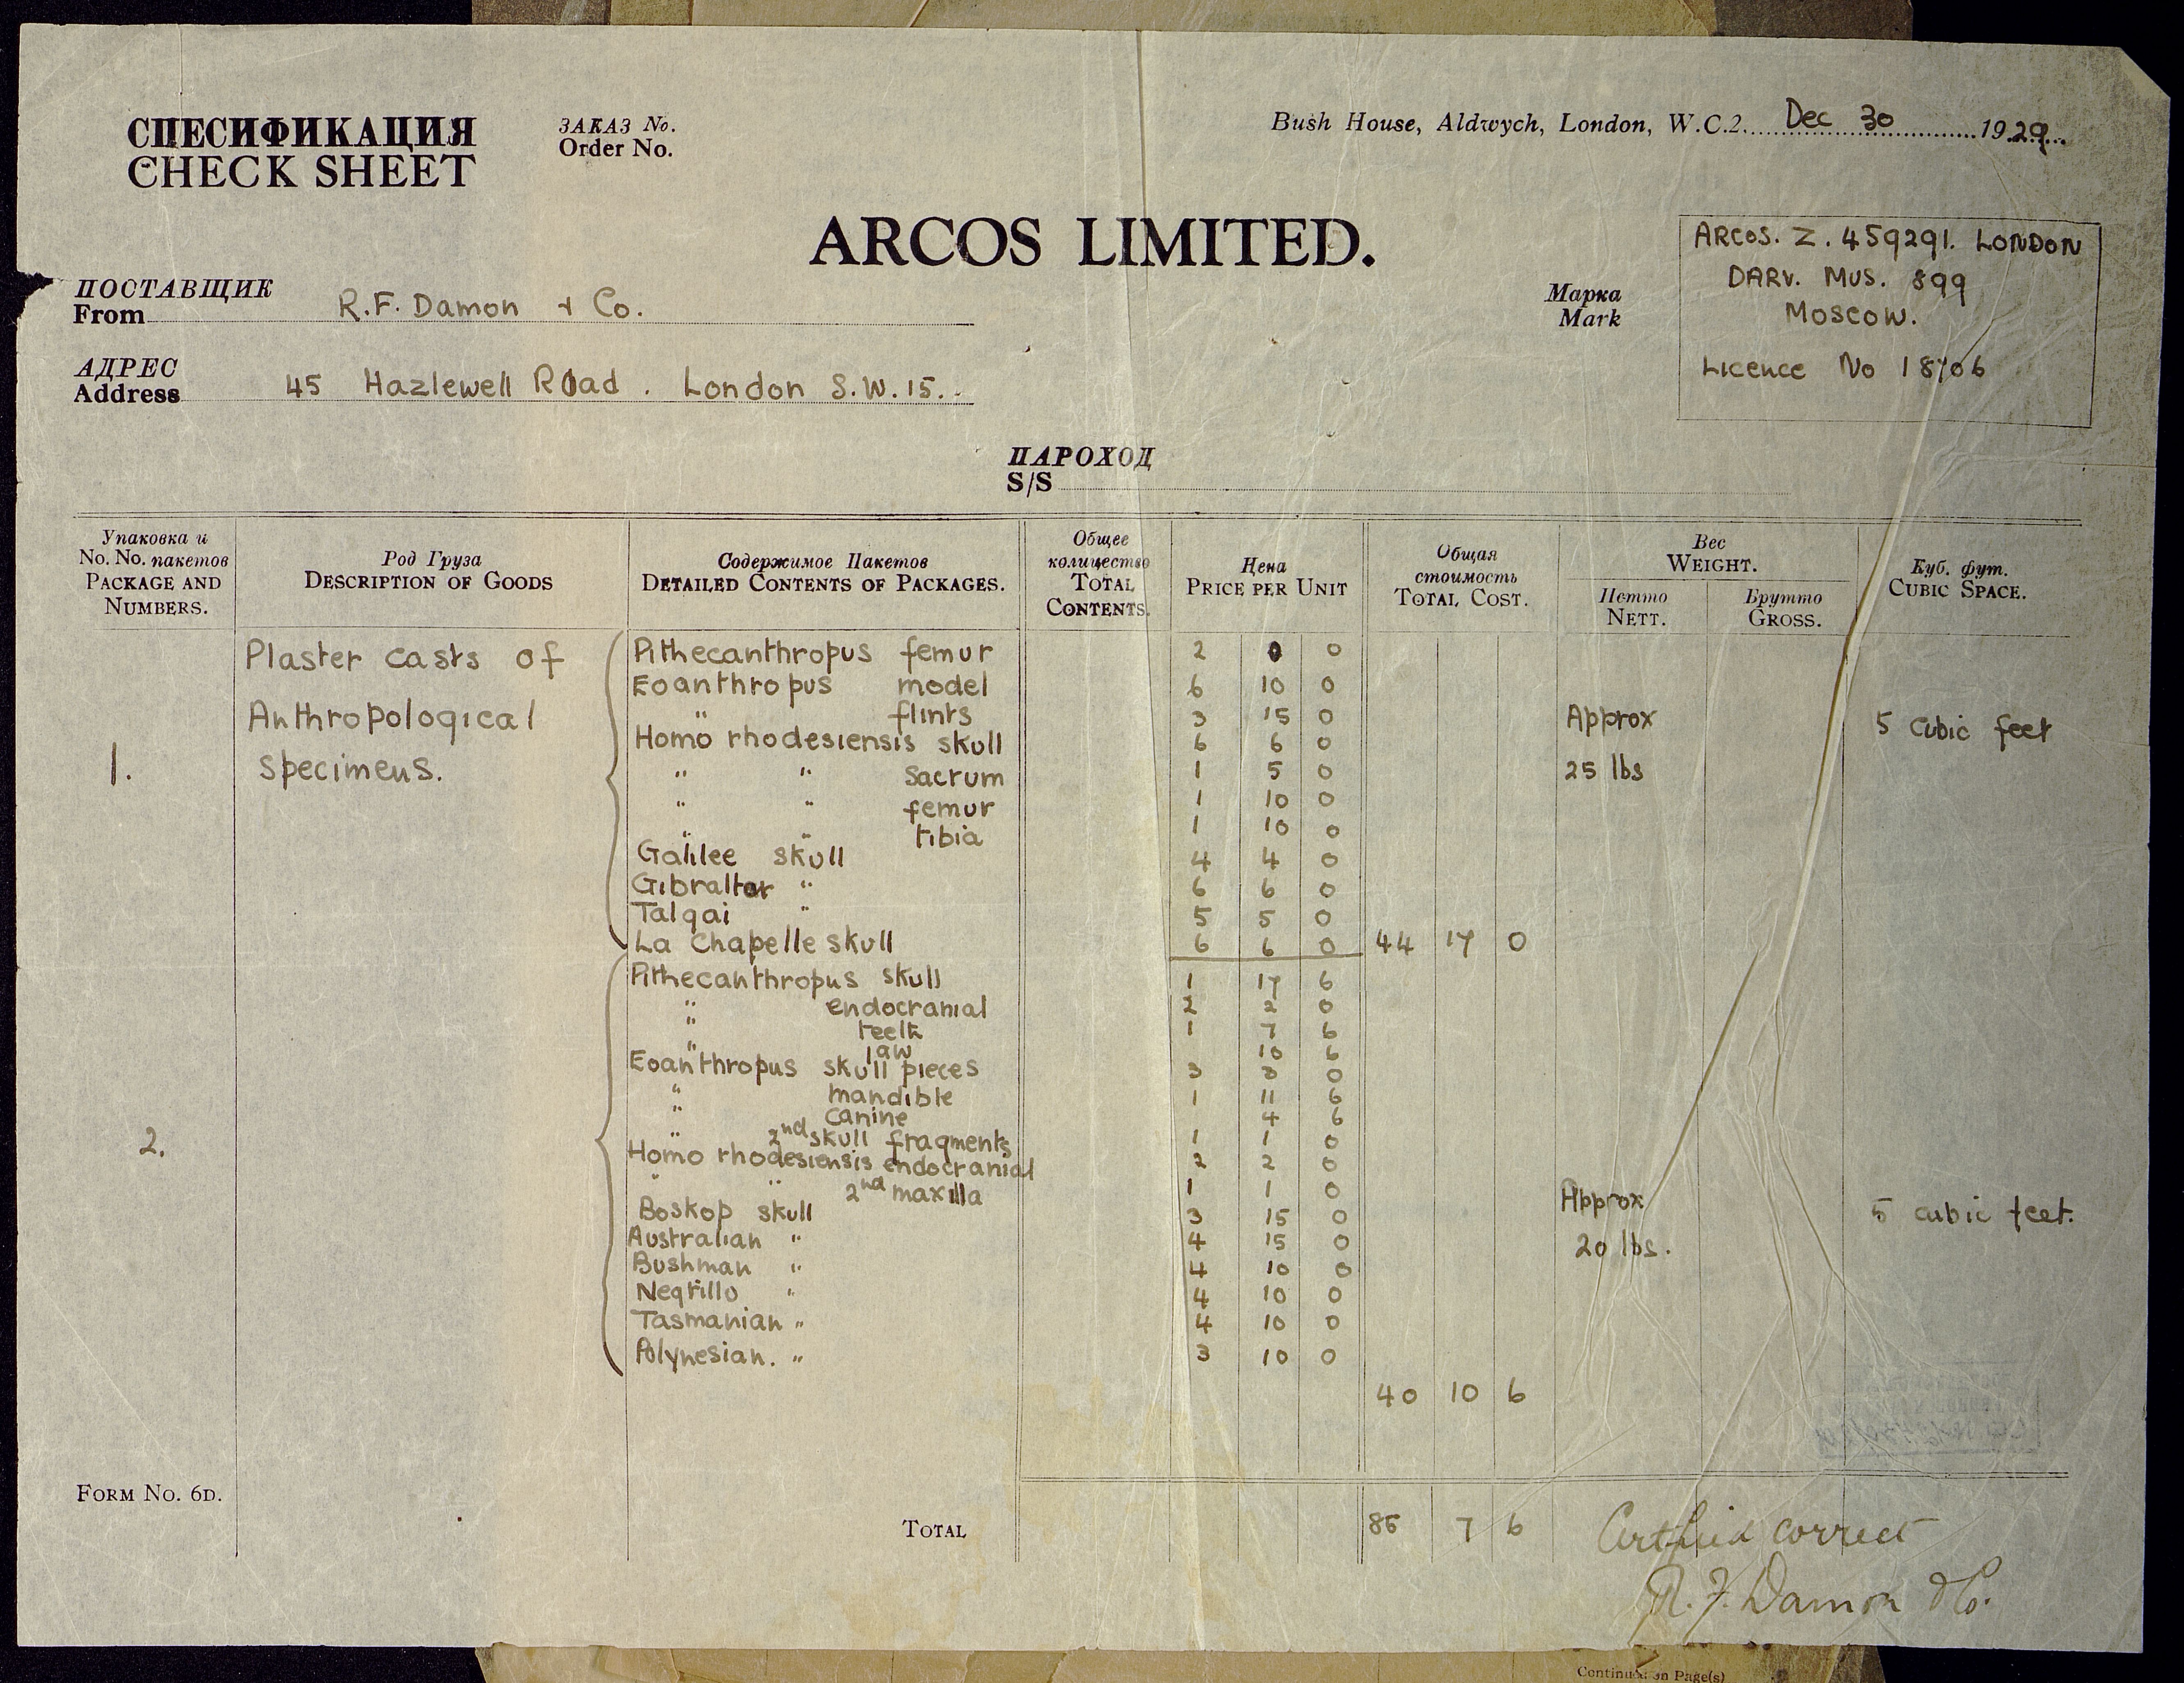 СПЕСИФИКАЦИЯ
CHECK SHEET
ЗАКАЗ No.
Order No.
Bush House, Aldwych, London, W.C.2. Dec 30 1929
ARCOS LIMITED.
ПОСТАВЩИК
From R.F. Damon & Co.
АДРЕС
Address 45 Hazlewell Road. London S.W.15.
Марка
Mark
ARCOS. Z. 459291. LONDON
DARV. MUS. 899
MOSCOW.
Licence No 18706
ПАРОХОД
S/S
Упаковка и
No. No. пакетов
PACKAGE AND
NUMBERS.
Род Груза
DESCRIPTION OF GOODS
Содержимое Пакетов
DETAILED CONTENTS OF PACKAGES.
Общее
количество
TOTAL
CONTENTS.
Цена
PRICE PER UNIT
Общая
стоимость
TOTAL COST.
Вес
WEIGHT.
Нетто
NETT.
Брутто
GROSS.
Куб. фут.
CUBIC SPACE.
1.
Plaster casts of
Anthropological
specimens.
Pithecanthropus femur 2 0 0
Eoanthropus model 6 10 0
" flints 3 15 0
Homo rhodesiensis skull 6 6 0
" " sacrum 1 5 0
" " femur 1 10 0
" " tibia 1 10 0
Galilee skull 4 4 0
Gibraltar " 6 6 0
Talgai " 5 5 0
La Chapelle skull 6 6 0 44 17 0
Approx
25 lbs
5 cubic feet
2.
Pithecanthropus skull 1 17 6
" endocranial 2 2 0
" teeth 1 7 6
" jaw 10 6
Eoanthropus skull pieces 3 3 0
" mandible 1 11 6
" canine 4 6
" 2nd skull fragments 1 1 0
Homo rhodesiensis endocranial 2 2 0
" " 2nd maxilla 1 1 0
Boskop skull 3 15 0
Australian " 4 15 0
Bushman " 4 10 0
Negrillo " 4 10 0
Tasmanian " 4 10 0
Polynesian. " 3 10 0
40 10 6
Approx
20 lbs.
5 cubic feet.
FORM No. 6D.
TOTAL 85 7 6
Certified correct
R. F. Damon & Co.
on Page(s)